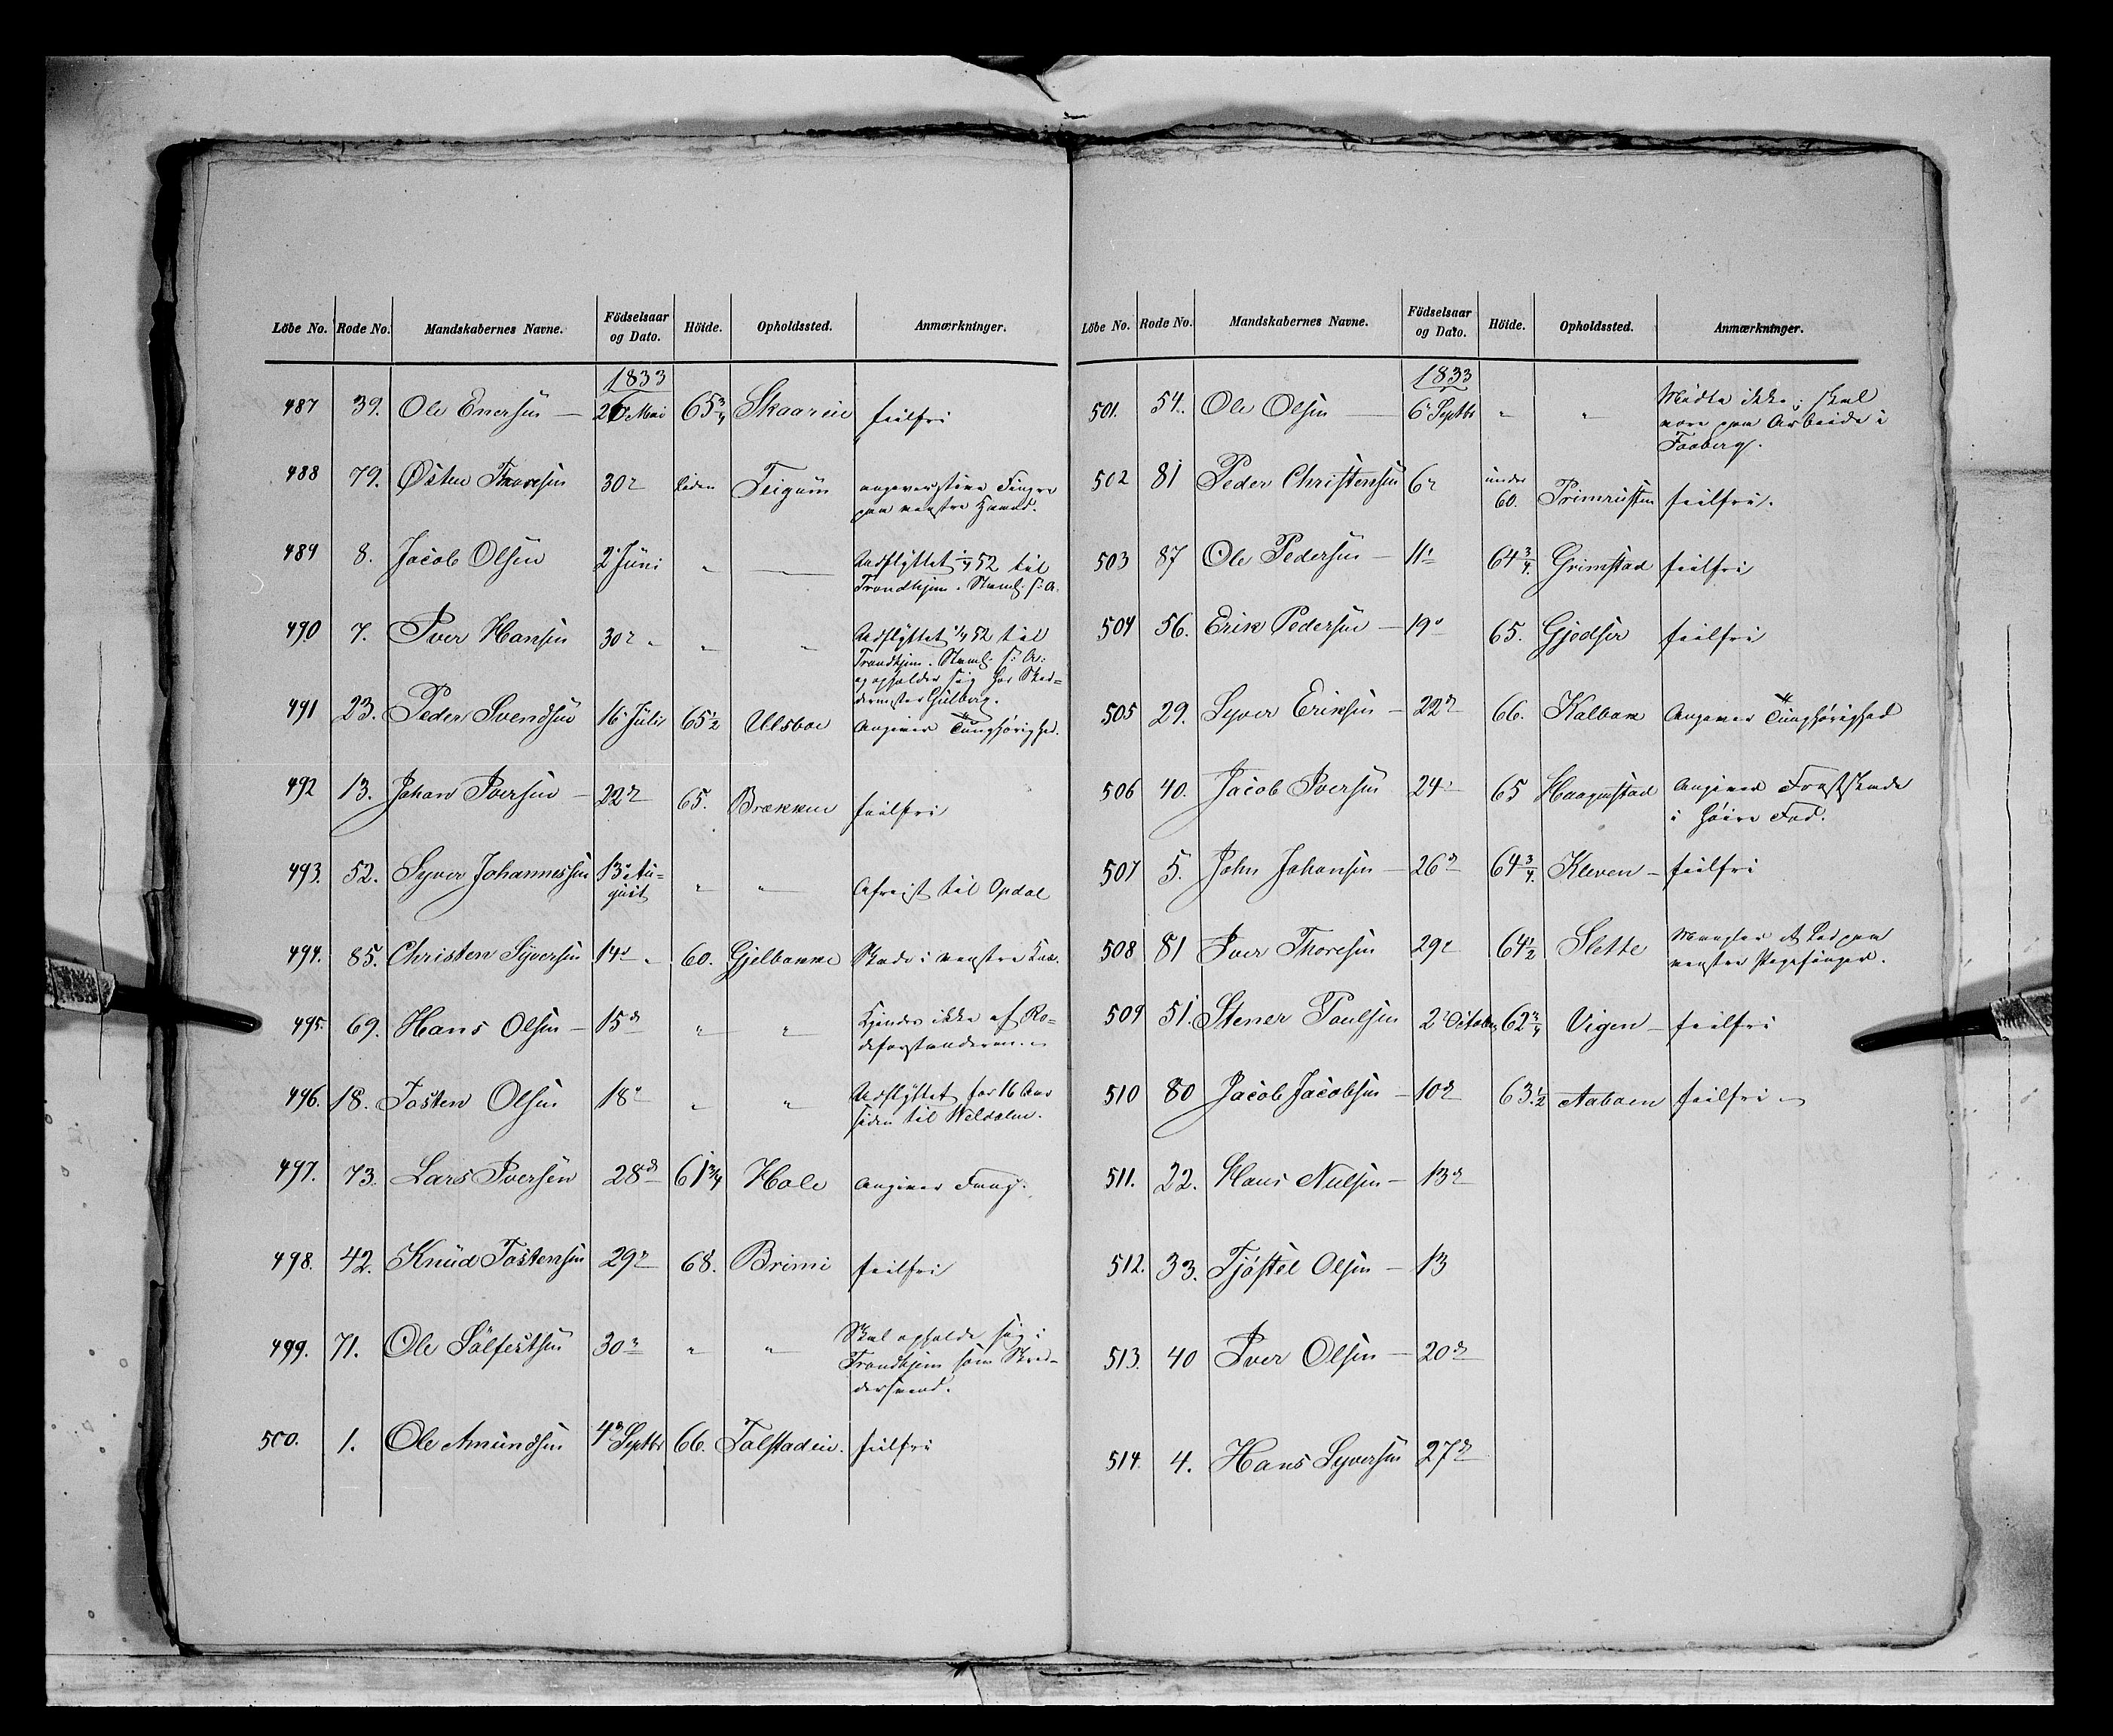 Löbe No. Rode No. Mandskabernes Navne. Födselsaar og Dato. Höide. Opholdssted. Anmærkninger.
1833
487 39. Ole Enersen — 26 Mai 65 3/4 Skaareie feilfri
488 79. Østen Thoresen 30 liden Teigum angiver stive Fingre
paa venstre Haand.
489 8. Jacob Olsen 2 Juni " — Udflyttet 52 til
Trondhjem. Staml. f: A.
490 7. Iver Hansen 30 " " " Udflyttet 1/4 52 til
Trondhjem. Staml. f: A:
opholder sig hos Skræ=
dermester Gulberg.
491 23. Peder Svendsen 16 Juli 65 1/2 Ulsboe Angiver Tunghørighed.
492 13. Johan Iversen — 22 65. Brække feilfri
493. 52. Syver Johannessen 13 Au=
gust " " Afreist til Opdal
494. 85. Christen Syversen 14 " 60. Gjelbakke Skade i venstre Knæ.
495. 69. Hans Olsen — 15 " " Kjendes ikke af Ro=
deforstanderen.
496. 18. Tosten Olsen 18 " " Udflyttet for 16 Aar
siden til Meldalen.
497. 73. Lars Iversen 28 61 3/4 Hole Angiver
498. 42. Knud Tostensen 29 68. Brimi feilfri
499. 71. Ole Sølfestsen 30 " " Skal opholde sig i
Trondhjem som Skræ=
dersvend.
500. 1. Ole Amundsen 4 Septbr 66. Tolstadeie. feilfri
Löbe No. Rode No. Mandskabernes Navne. Födselsaar og Dato. Höide. Opholdssted. Anmærkninger.
1833
501. 54. Ole Olsen — 6 Septbr " " Mødte ikke; skal
være paa Arbeide i
Faaberg.
502 81 Peder Christensen 6 under
60. Primrusten feilfri.
503 87 Ole Pedersen — 11 64 3/4. Grimstad feilfri
504 56. Erik Pedersen — 19 65. Gjedser feilfri
505 29. Syver Eriksen — 22 66. Kalbak Angiver Tunghørighed
506 40. Jacob Iversen 24 65 Haagenstad Angiver Frostskade
i høire Fod.
507 5. John Johansen — 26 64 3/4. Kleven — feilfri
508 81 Iver Thoresen 29 64 1/2 Slette Mangler et Led paa
venstre Pegefinger.
509 51. Stener Poulsen 2 October 62 3/4 Vigen — feilfri
510 80 Jacob Jacobsen — 10 63. 1/2 Aaboen feilfri
511. 22. Hans Nielsen — 13
512. 33. Tjøstel Olsen — 13
513. 40 Iver Olsen — 20
514. 4. Hans Syversen 27